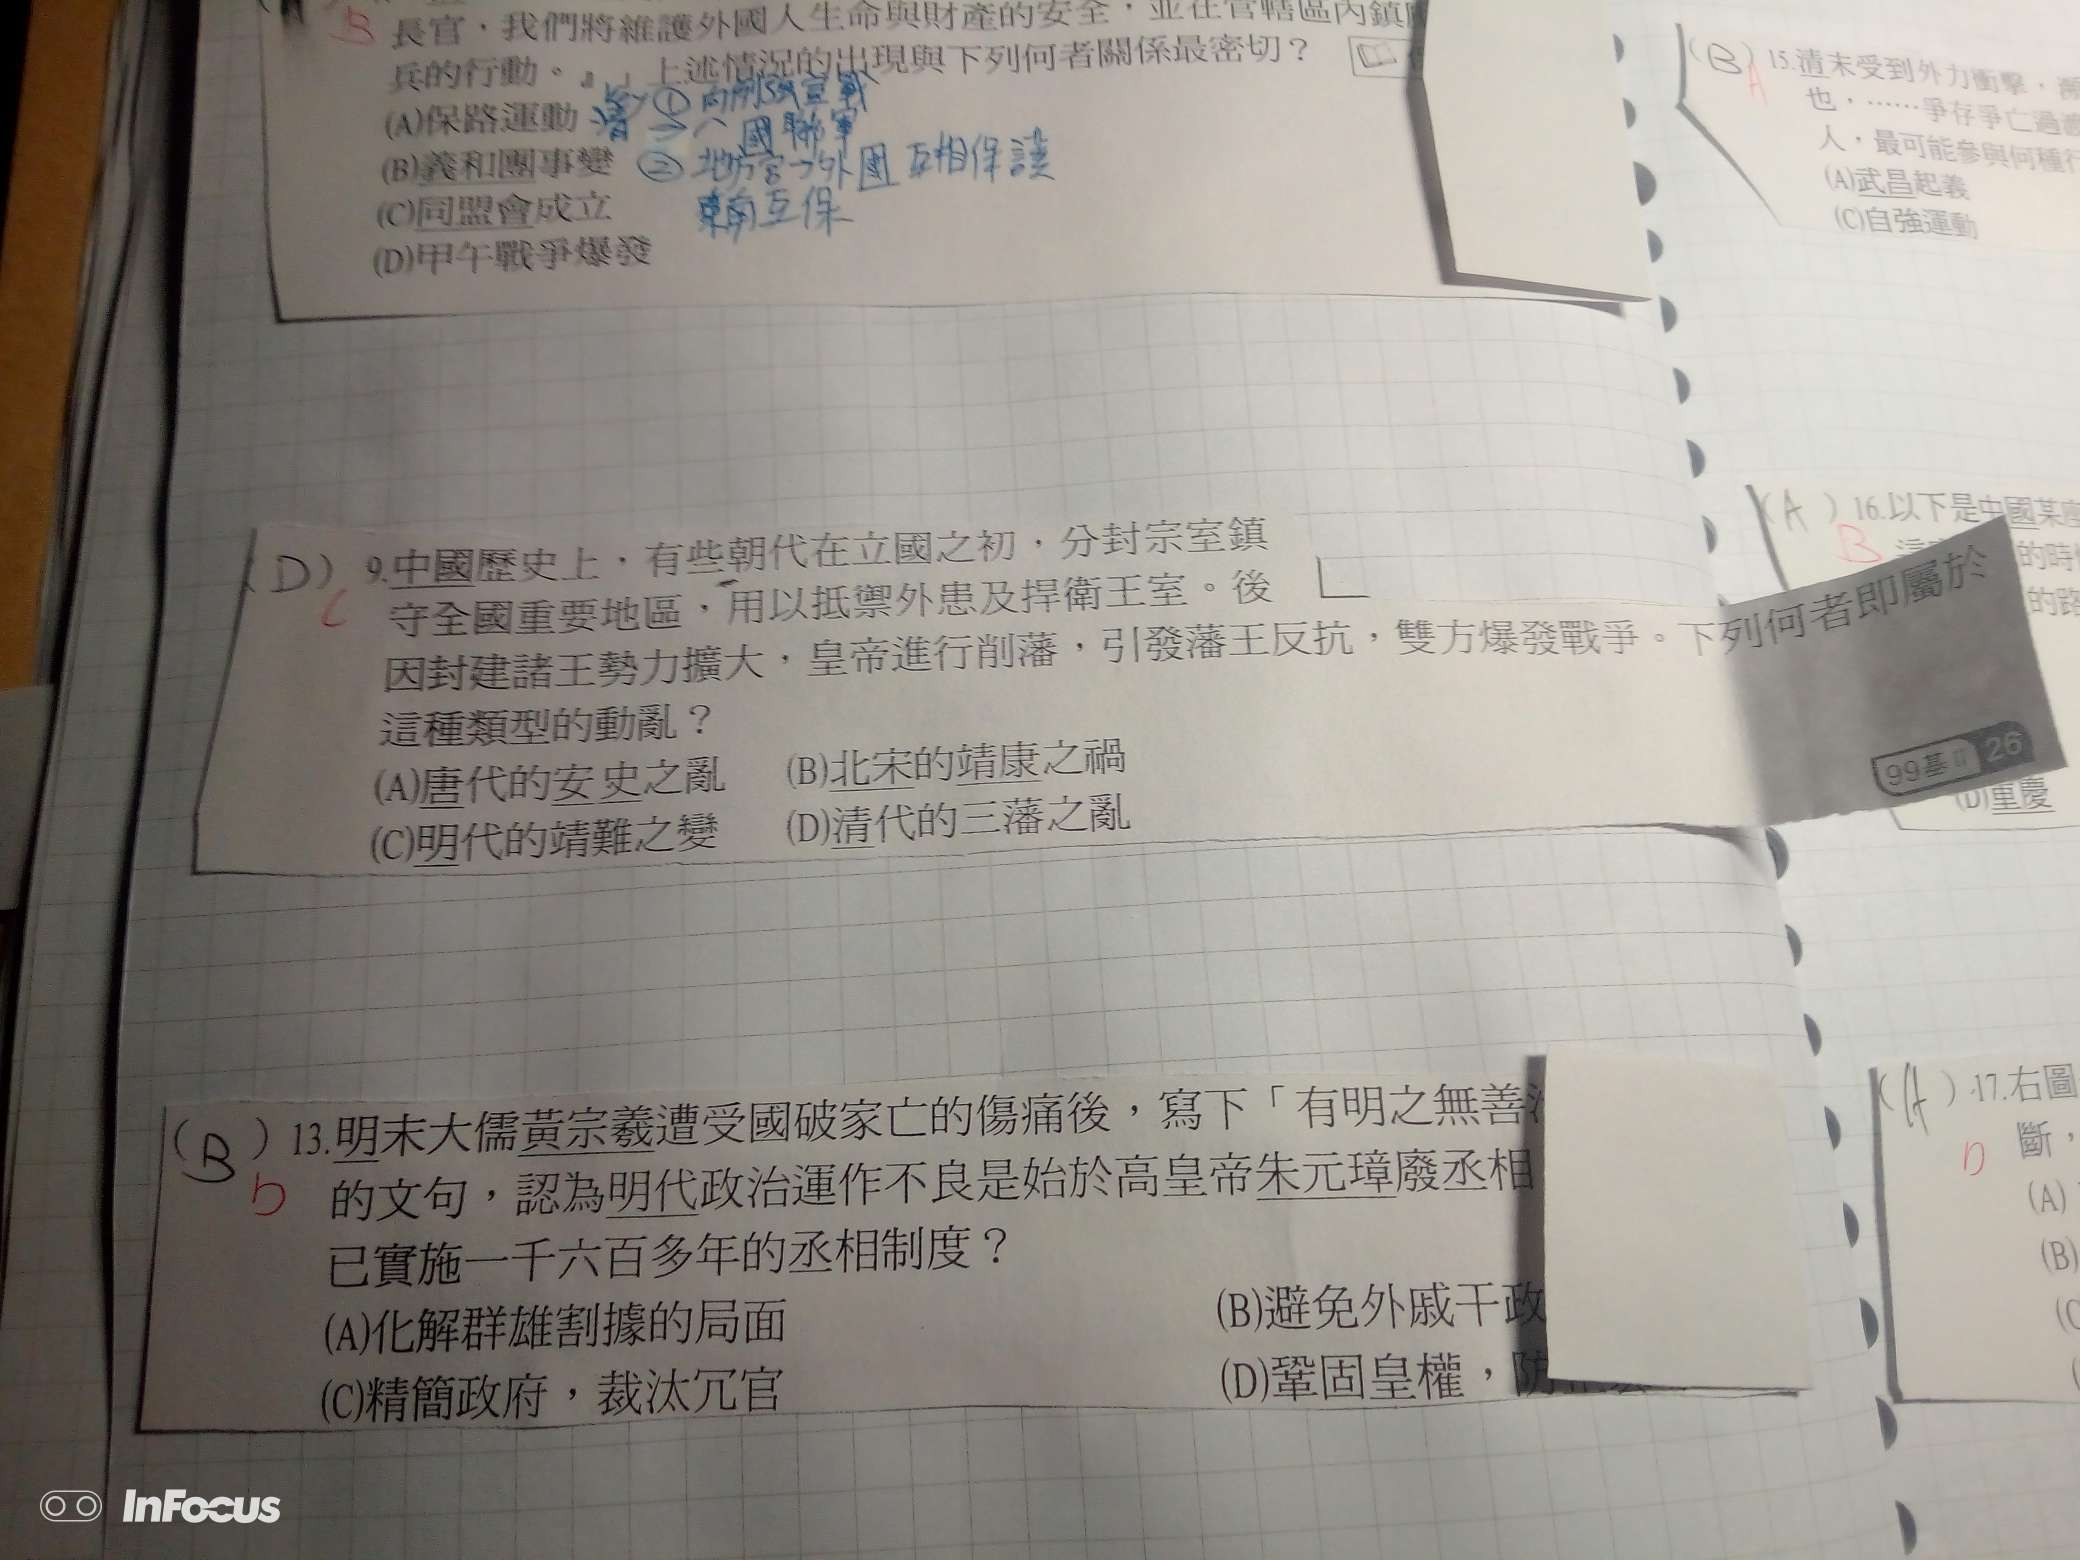 B
長官，我們將維護外國人生命與財產的安全，並在管轄區內鎮
兵的行動。』」上述情況的出現與下列何者關係最密切？
(A)保路運動
(B)義和團事變
(C)同盟會成立
(D)甲午戰爭爆發
清 ① 向列強宣戰
→八國聯軍
② 地方官→外國 互相保護
東南互保
(D) 9.中國歷史上，有些朝代在立國之初，分封宗室鎮
C
守全國重要地區，用以抵禦外患及捍衛王室。後
因封建諸王勢力擴大，皇帝進行削藩，引發藩王反抗，雙方爆發戰爭。下列何者即屬於
這種類型的動亂？
(A)唐代的安史之亂 (B)北宋的靖康之禍
(C)明代的靖難之變 (D)清代的三藩之亂
99基II 26
(B) 13.明末大儒黃宗羲遭受國破家亡的傷痛後，寫下「有明之無善
D
的文句，認為明代政治運作不良是始於高皇帝朱元璋廢丞相
已實施一千六百多年的丞相制度？
(A)化解群雄割據的局面 (B)避免外戚干政
(C)精簡政府，裁汰冗官 (D)鞏固皇權，防
(B) 15.清末受到外力衝擊，
A
也，……爭存爭亡過
人，最可能參與何種
(A)武昌起義
(C)自強運動
(A) 16.以下是中國某
B
的時
的路
(D)重慶
(A) 17.右圖
D
斷，
(A)
(B)
(C
InFocus